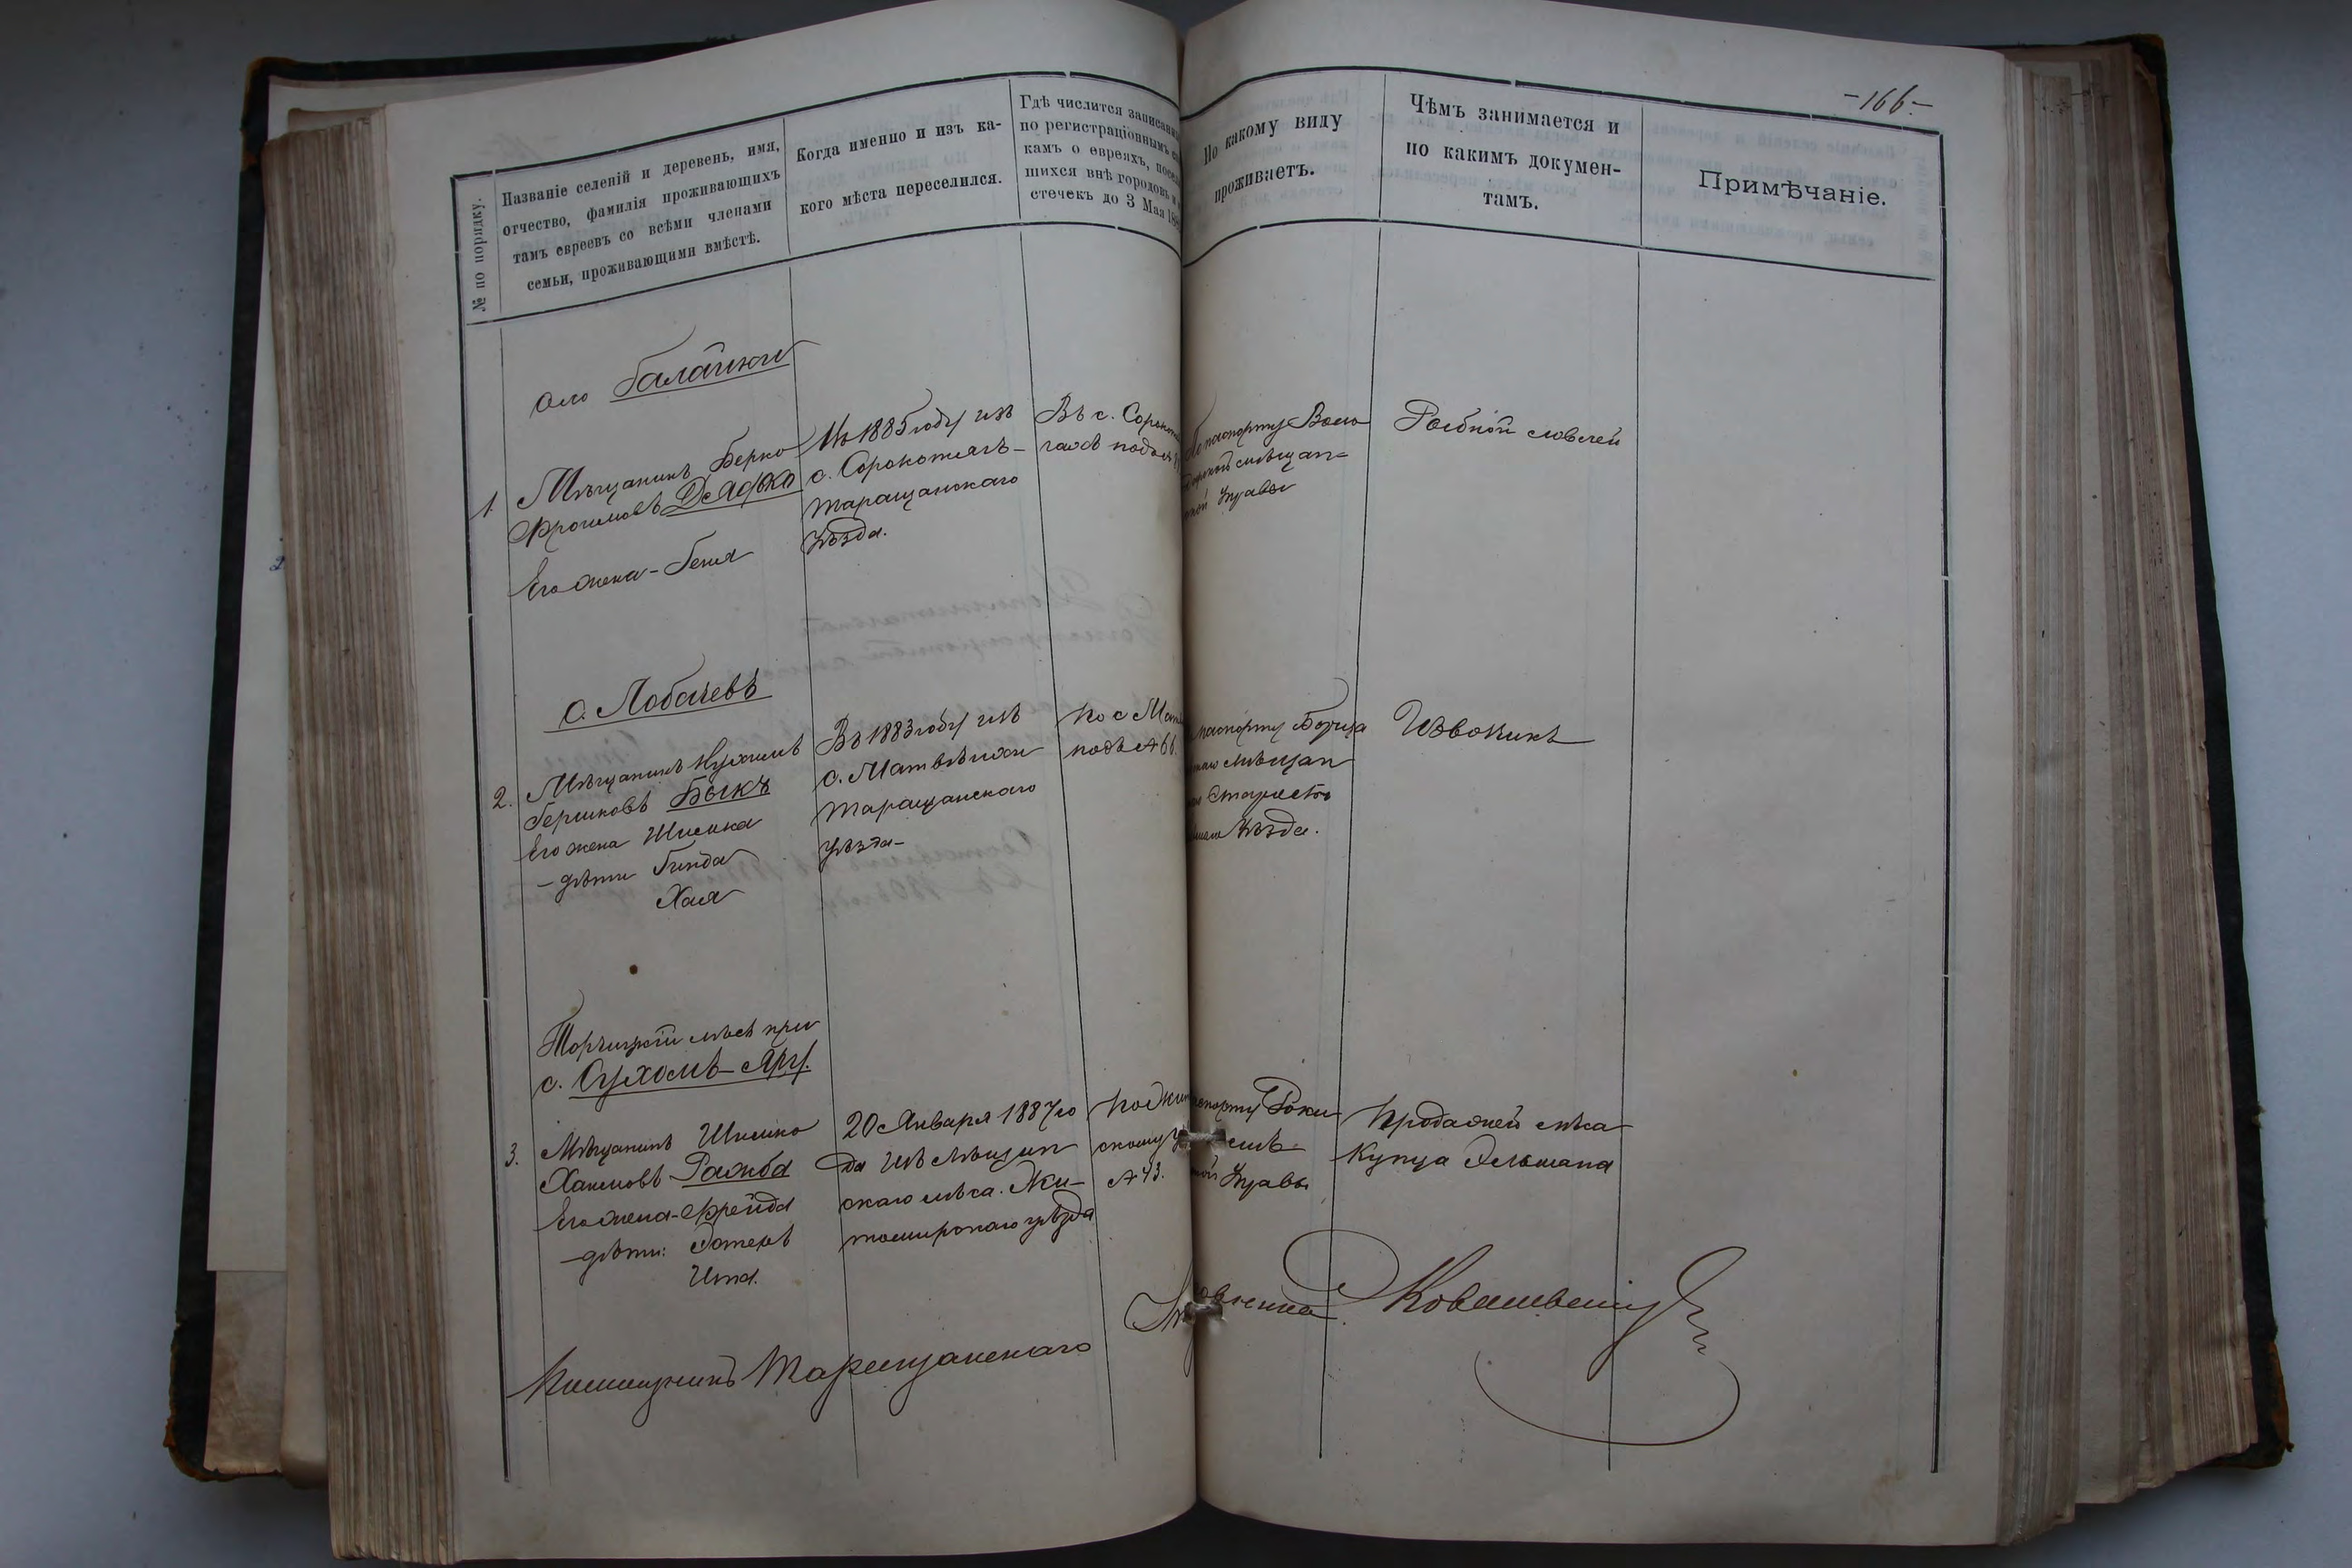 -166-
№ по порядку.
Названіе селеній и деревень, имя,
отчество, фамилія проживающихъ
тамъ евреевъ со всѣми членами
семьи, проживающими вмѣстѣ.
Когда именно и изъ ка-
кого мѣста переселился.
Гдѣ числится записанн
по регистраціоннымъ
камъ о евреяхъ, посел
шихся внѣ городовъ и
стечекъ до 3 Мая 188
По какому виду
проживаетъ.
Чѣмъ занимается и
по какимъ докумен-
тамъ.
Примѣчаніе.
Село Галайки
1. Мѣщанинъ Берко
Фроимовъ
Его жена - Геня
Въ 1885 году изъ
с. Сорокотягъ-
Таращанскаго
уѣзда.
Въ с. Сорокотя
гахъ подъ
По паспорту
мѣщан-
ской Управы
Рыбной ловлей
с. Лобачевъ
2. Мѣщанинъ Нухимъ
Гершковъ Быкъ
Его жена Шисика
- дѣти Гинда
Хая
Въ 1883 году изъ
с. Матвѣихи
Таращанскаго
уѣзда-
По с Мат
подъ № 61.
паспорту
мѣщан
Старосты
уѣзда.
Извощикъ
Торчицкій лѣсъ при
с. Сухомъ-Яру.
3. Мѣщанинъ Шмилко
Хаимовъ
Его жена - Фрейда
- дѣти: Эстеръ
Ита.
20 Января 1887 го
да изъ
скаго лѣса. Жи-
томирскаго уѣзда
По Жит
скому
№ 43.
паспорту
мѣ-
ной Управы
Продажей лѣса
Купца Эльмана
Помощникъ Таращанскаго
Исправника